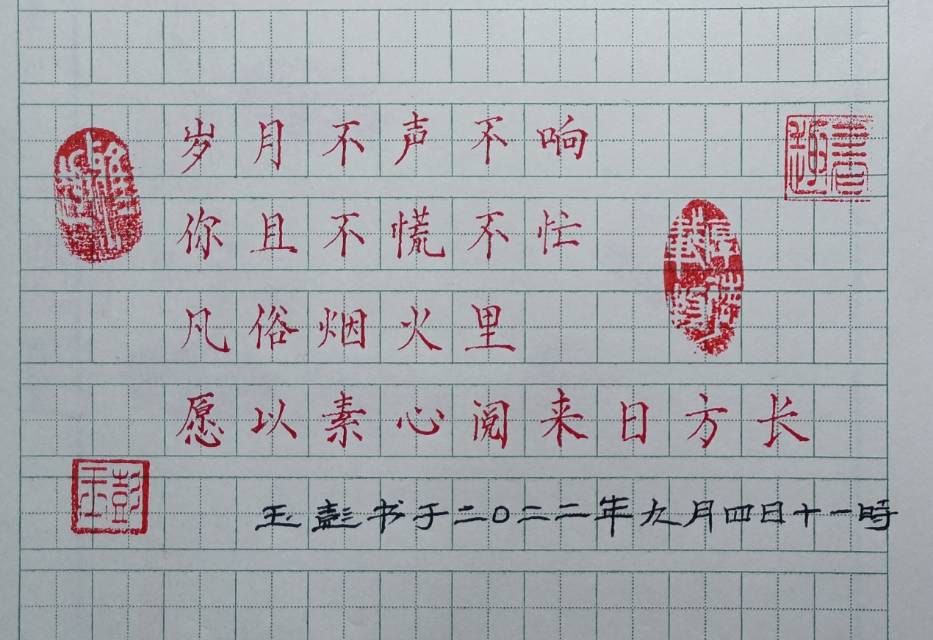 岁月不声不响
你且不慌不忙
凡俗烟火里
愿以素心阅来日方长
玉彭书于二0二二年九月四日十一時